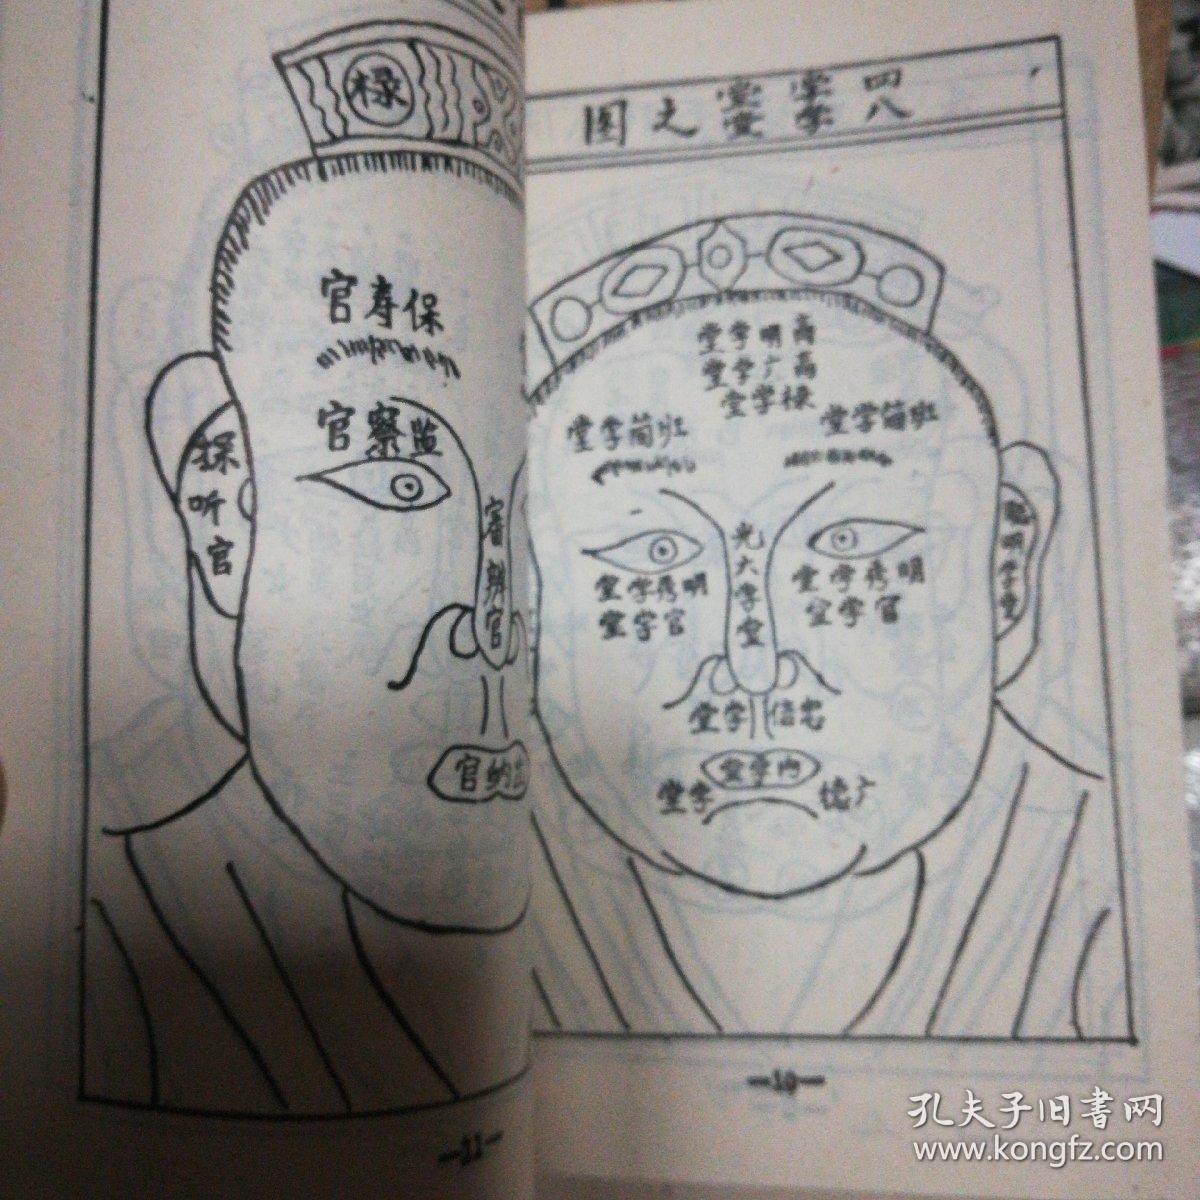 四学堂
八学堂
之图
高明学堂
高广学堂
禄学堂
班筍学堂
班筍学堂
光大学堂
明秀学堂
官学堂
明秀学堂
官学堂
聪明学堂
忠信学堂
内学堂
广德学堂
—10—
禄
保寿官
监察官
採听官
审辨官
出纳官
—11—
孔夫子旧書网
www.kongfz.com